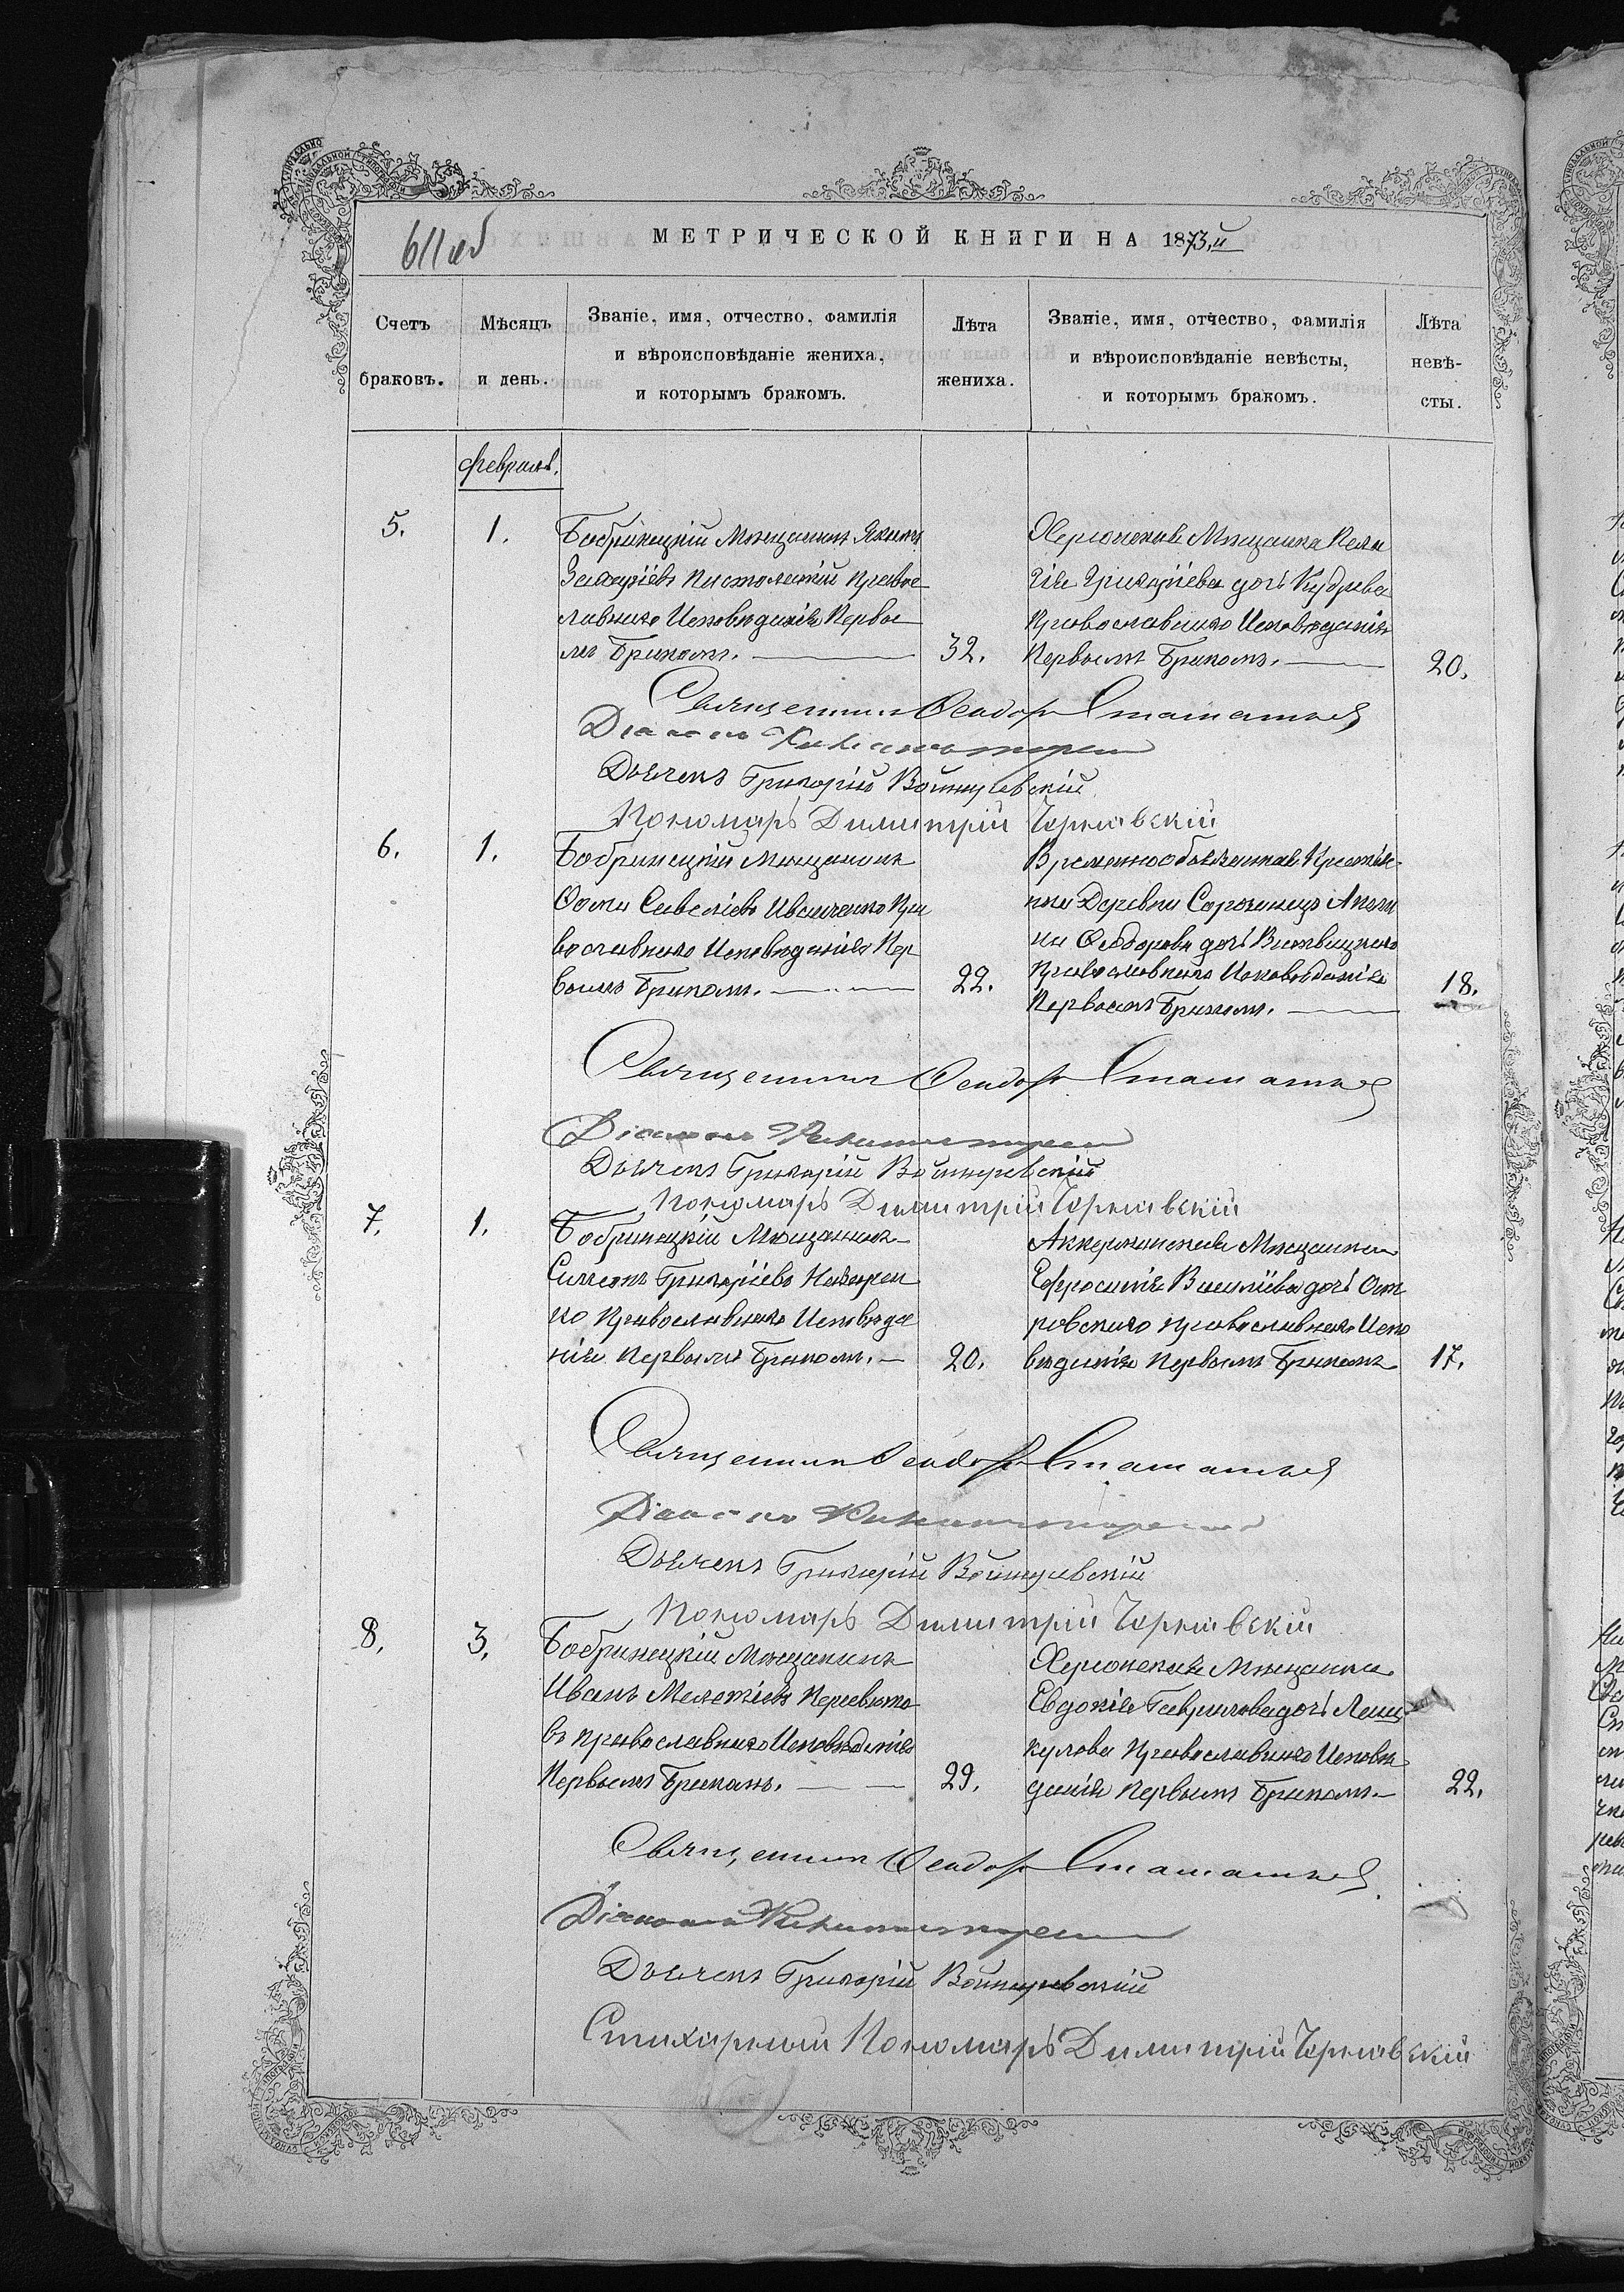 611 об
МЕТРИЧЕСКОЙ КНИГИ НА 1873,й
Счетъ браковъ.
Мѣсяцъ и день.
Званіе, имя, отчество, фамилія
и вѣроисповѣданіе жениха,
и которымъ бракомъ.
Лѣта
жениха.
Званіе, имя, отчество, фамилія
и вѣроисповѣданіе невѣсты,
и которымъ бракомъ.
Лѣта
невѣ-
сты.
Февраль.
5.
1.
Бобринецкій Мѣщанинъ Якимъ
Захаріевъ Пистолетній Право
славнаго Исповѣданія Первы
мъ Бракомъ.
32.
Херсонская Мѣщанка Пела
гія Григоріева дочь Кудрева
Православнаго Исповѣданія
Первымъ Бракомъ.
20.
Священникъ Ѳеодоръ
Діаконъ
Дьячекъ Григорій Войнуревскій
Пономарь Димитрій Чернявскій
6.
1.
Бобринецкій Мѣщанинъ
Ѳома Савеліевъ Иваненко Пра
вославнаго Исповѣданія Пер
вымъ Бракомъ.
22.
Временнообязанная Крестьян-
ка Деревни Сорочинецъ
на Ѳеодорова дочь
Православнаго Исповѣданія
Первымъ Бракомъ.
18.
Священникъ Ѳеодоръ
Діаконъ
Дьячекъ Григорій Войнуревскій
Пономарь Димитрій Чернявскій
7.
1.
Бобринецкій Мѣщанинъ
Симеонъ Григоріевъ Назарен
ко Православнаго Исповѣда
нія Первымъ Бракомъ.
20.
Аккерманская Мѣщанка
Ефросинія Василіева дочь Ост
ровскаго Православнаго Испо
вѣданія Первымъ Бракомъ
17.
Священникъ Ѳеодоръ
Діаконъ
Дьячекъ Григорій Войнуревскій
Пономарь Димитрій Чернявскій
8.
3.
Бобринецкій Мѣщанинъ
Иванъ Мелетіевъ
въ Православнаго Исповѣданія
Первымъ Бракомъ.
29.
Херсонская Мѣщанка
Евдокія Гаврилова дочь Лаш
курова Православнаго Исповѣ
данія Первымъ Бракомъ.
22.
Священникъ Ѳеодоръ
Діаконъ
Дьячекъ Григорій Войнуревскій
Стихарный Пономарь Димитрій Чернявскій